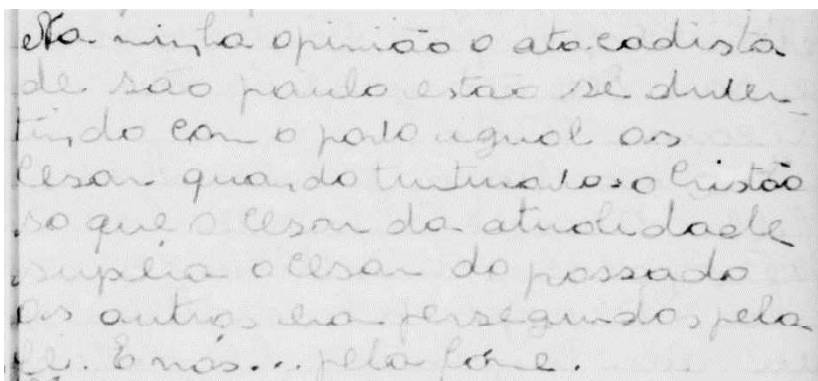 Na minha opinião o atacadista
de São paulo estão se diver-
tindo com o povo igual os
Cesar quando torturava os Cristão
so que o Cesar da atualidade
supera o Cesar do passado
os outros era perseguidos pela
fé. E nós... pela fome.